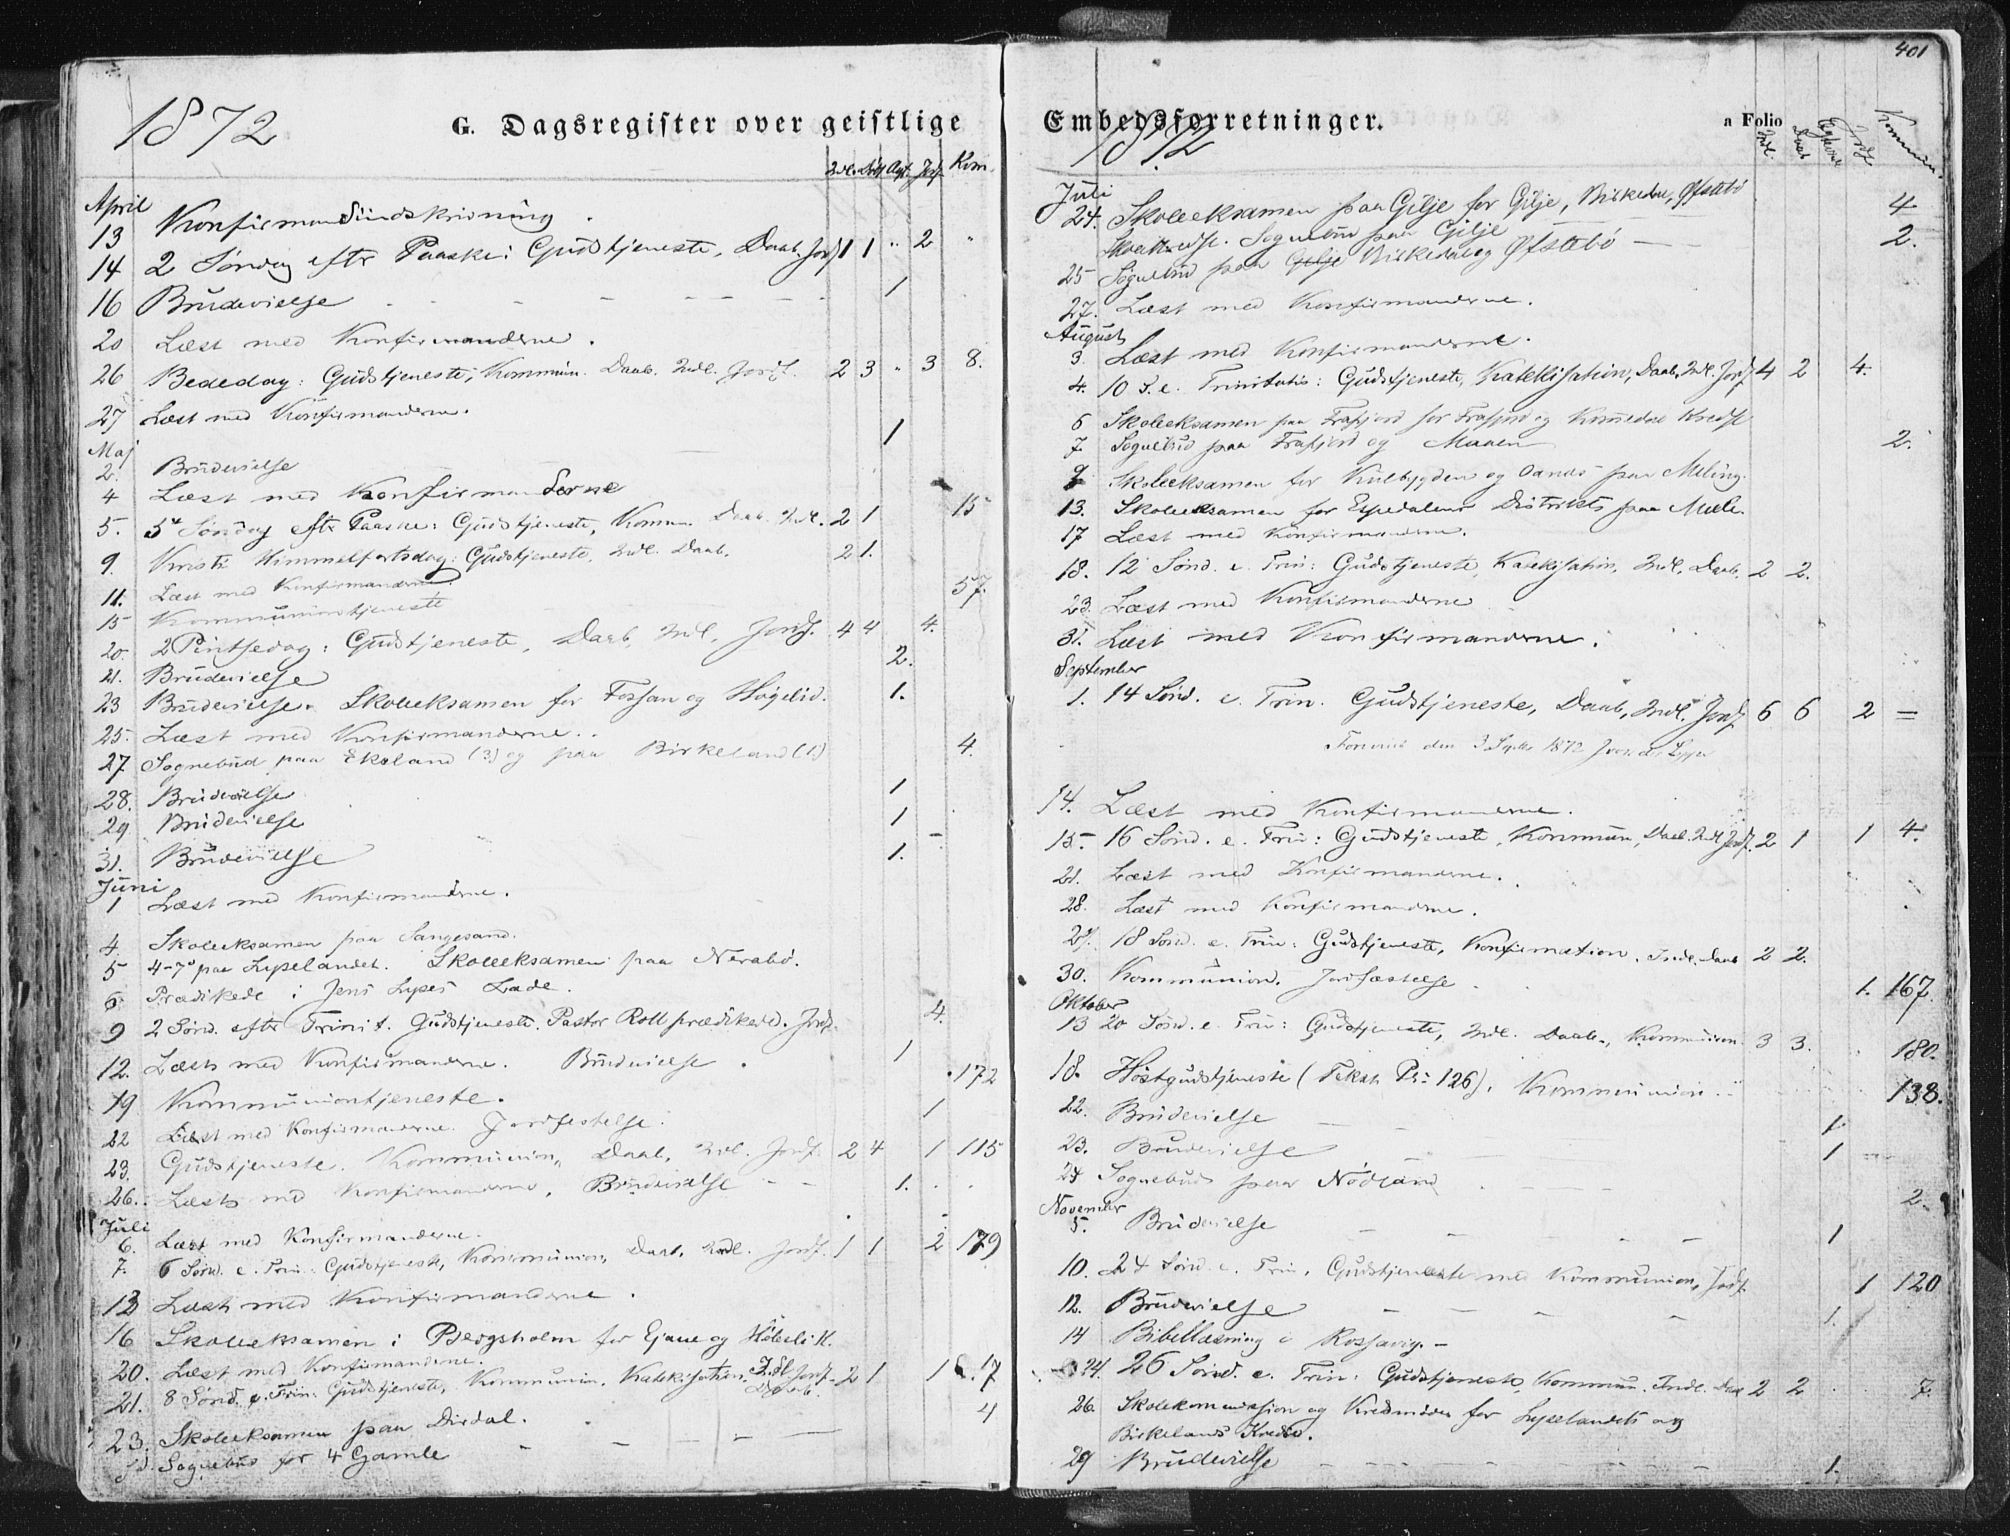 1872
G. Dagsregister over geistlige
Indl. Døbt Ægt. Jordf. Kom.
April
13 Konfirmandindskrivning.
14 2 Søndag eftr Paaske: Gudstjeneste, Daab. Jordf 1 1 " 2 "
16 Brudevielse - - - - - - 1
20 Læst med Konfirmanderne.
26 Bededag: Gudstjeneste, Kommun. Daab. Indl. Jordf. 2 3 " 3 8.
27 Læst med Konfirmanderne.
Maj
2. Brudevielse 1
4 Læst med Konfirmanderne
5. 5te Søndag eftr Paaske: Gudstjeneste, Kommun. Daab. Indl. 2 1 15
9. Kristi Himmelfartsdag: Gudstjeneste, Indl. Daab. 2 1.
11. Læst med Konfirmanderne.
15 Kommuniontjeneste 57.
20. 2 Pintsedag: Gudstjeneste, Daab, Indl, Jordf. 4 4 4.
21. Brudevielse 2.
23 Brudevielse. Skoleeksamen for Fossan og Høgelid. 1.
25. Læst med Konfirmanderne.
27. Sognebud paa Ekeland (3) og paa Birkeland (1) 4.
28. Brudevielse 1
29 Brudevielse 1
31. Brudevielse 1.
Juni
1 Læst med Konfirmanderne.
4. Skoleeksamen paa Sangesand.
5 4-7de paa Lyselandet. Skoleeksamen paa Nerabø.
6. Prædikede i Jens Lyses Lade.
9 2 Sønd. eftr Trinit. Gudstjeneste. Pastor Roll prædikede. Jordf. 4.
12. Læst med Konfirmanderne. Brudevielse. 1
19 Kommuniontjeneste. 172
22 Læst med Konfirmanderne. Jordfestelse. 1
23. Gudstjeneste. Kommunion, Daab, Indl. Jordf. 2 4 1 115
26. Læst med Konfirmanderne, Brudevielse - - 1.
Juli
6. Læst med Konfirmanderne.
7. 6 Sønd. e. Trin: Gudstjeneste, Kommunion, Daab, Indl. Jordf. 1 1 2 179
13 Læst med Konfirmanderne.
16 Skoleeksamen i Bergsholm for Ejane og Høleslid.
20. Læst med Konfirmanderne.
21. 8 Sønd. e. Trin: Gudstjeneste, Kommunion. Katekisation. Indl Jordf. Daab. 2 1 1 17
23. Skoleeksamen paa Dirdal.
Sognebud for 4 Gamle - - - - 4
401
Embedsforretninger.
1872
a Folio
Indl. Daab Jordf. Kommun.
Juli
24. Skoleeksamen paa Gilje for Gilje, Birkedal, Øfstebø
Sognebud paa Gilje 4
25 Sognebud paa Gilje Birkedal og Øfstebø - 2.
27. Læst med Konfirmanderne.
August
3. Læst med Konfirmanderne.
4. 10 S. e. Trinitatis: Gudstjeneste, Katekisation, Daab, Indl. Jordf 4 2 4.
6 Skoleeksamen paa Frafjord for Frafjord og Kommedal Kreds
7. Sognebud paa Frafjord og Maaen 2.
9 Skoleeksamen for Kolbygden og Oanæs paa Meling.
13. Skoleeksamen for Espedalens Distrikts paa Mæle.
17 Læst med Konfirmanderne.
18. 12 Sønd. e. Trin: Gudstjeneste, Katekisation, Indl. Daab. 2 2.
23. Læst med Konfirmanderne
31. Læst med Konfirmanderne.
September
1. 14 Sønd. e. Trin. Gudstjeneste, Daab, Indl. Jordf. 6 6 2 =
den 3 Septbr 1872
14. Læst med Konfirmanderne.
15. 16 Sønd. e. Trin: Gudstjeneste, Kommun, Daab. Indl Jordf. 2 1 1 4.
21. Læst med Konfirmanderne.
28. Læst med Konfirmanderne.
29. 18 Sønd. e. Trin: Gudstjeneste, Konfirmation. Indl. Daab 2 2.
30. Kommunion. Jordfæstelse 1. 167.
Oktober
13 20 Sønd. e. Trin: Gudstjeneste, Indl. Daab., Kommunion. 3 3. 180.
18. Høstgudstjeneste (Tekst Ps: 126). Kommunion. 138.
22. Brudevielse - - - 1.
23. Brudevielse 1
24 Sognebud paa Nødland - - - 2.
November
5. Brudevielse - - - - 1
10. 24 Sønd. e. Trin. Gudstjeneste med Kommunion, Jordf. 1 120
12. Brudevielse - - - - 1.
14 Bibellæsning i Rossavig. -
24. 26 Sønd. e. Trin: Gudstjeneste, Kommun. Indl. Daab 2 2 7.
26. Skolekommission og Kredsmøder for Lyselandets og
Birkelands Kredse.
29 Brudevielse - - - - 1.